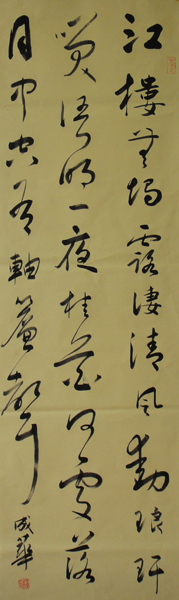 江樓無燭露凄清風動琅玕
笑語明一夜桂花何處落
月中空有軸簾聲
成華